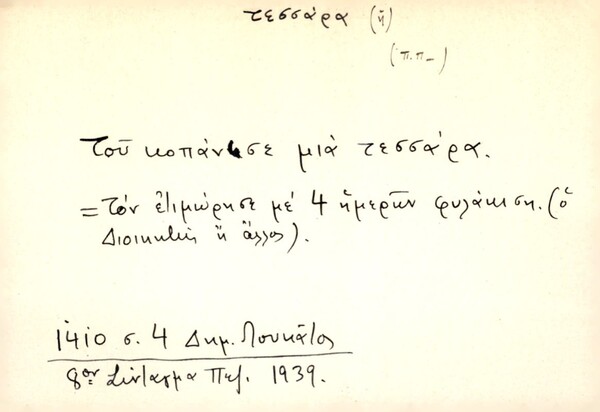 τεσσάρα (ἡ)
(π.π-)
Τοῦ κοπάνισε μιὰ τεσσάρα.
= Τὸν ἐτιμώρησε μέ 4 ἡμερῶν φυλάκιση. (ὁ
Διοικητὴς ἢ ἄλλος).
1410 σ. 4 Δημ. Λουκᾶτος
8ον Σύνταγμα Πεζ. 1939.